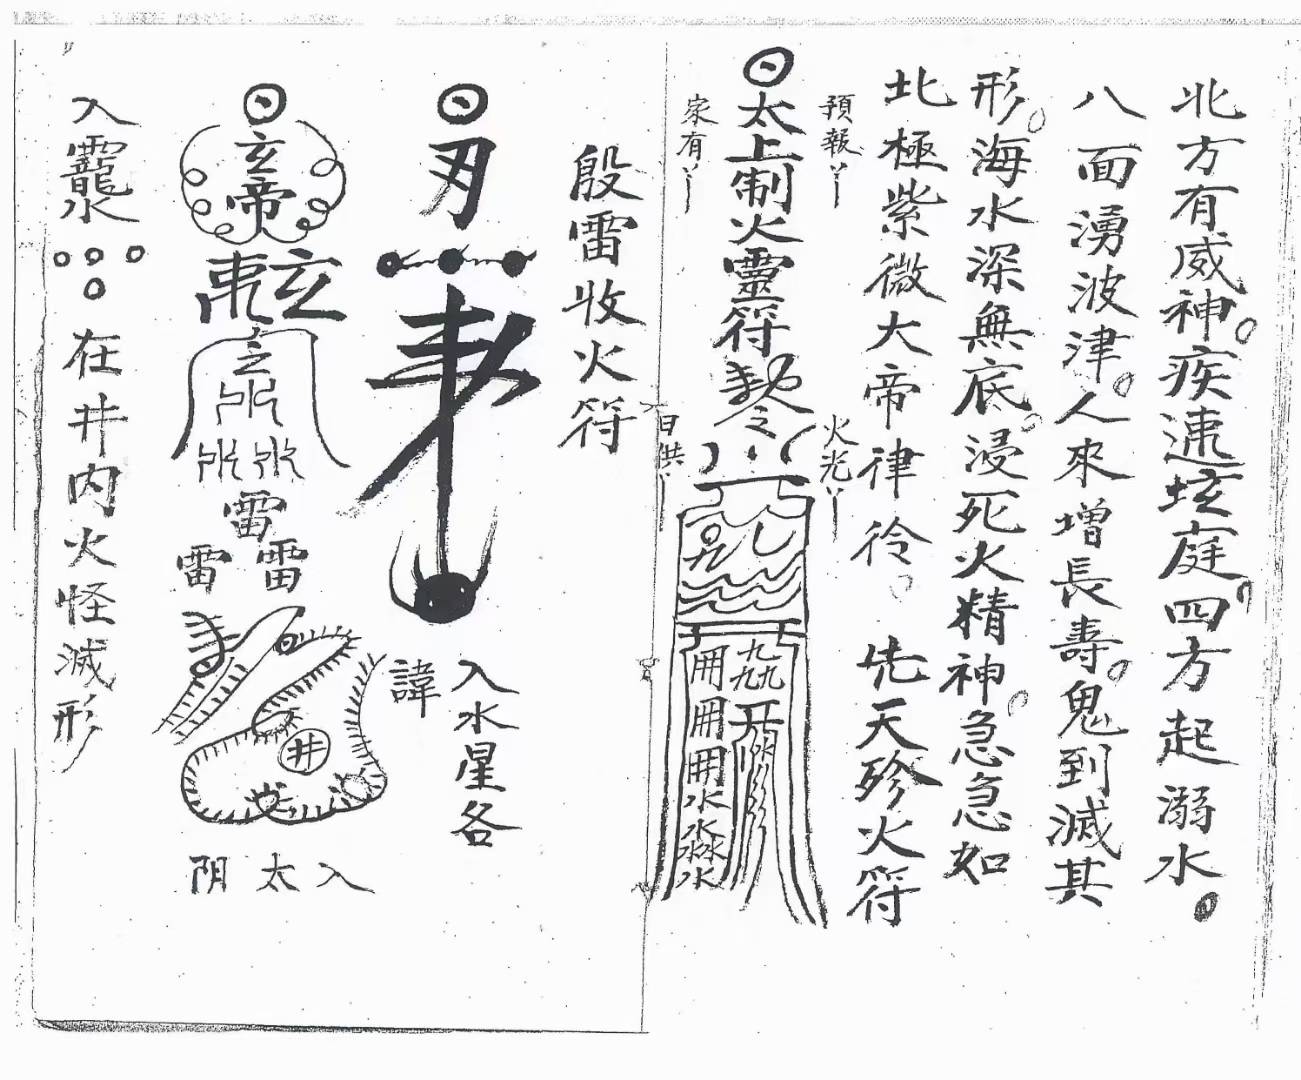 北方有威神。疾速垓庭。四方起溺水。
八面湧波津。人來增長壽。鬼到滅其
形。海水深無底。浸死火精神。急急如
北極紫微大帝律令。 先天殄火符
預報丫
火光丫
太上制火靈符
家有丫
日供丫
九九九
開開開
水水水水水水
殷雷收火符
入水星各
諱
玄帝
玄
雷
雷雷
井
入太阴
入龗水
在井内火怪滅形